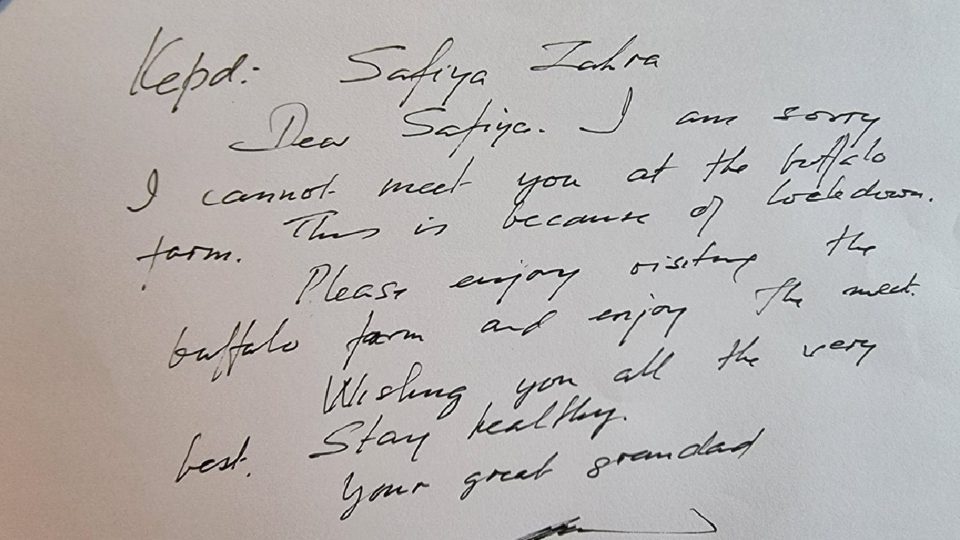 Kepd:- Safiya Zahra
Dear Safiya. I am sorry
I cannot meet you at the buffalo
farm. This is because of lockdown.
Please enjoy visiting the
buffalo farm and enjoy the meat.
Wishing you all the very
best. Stay healthy.
Your great grandad